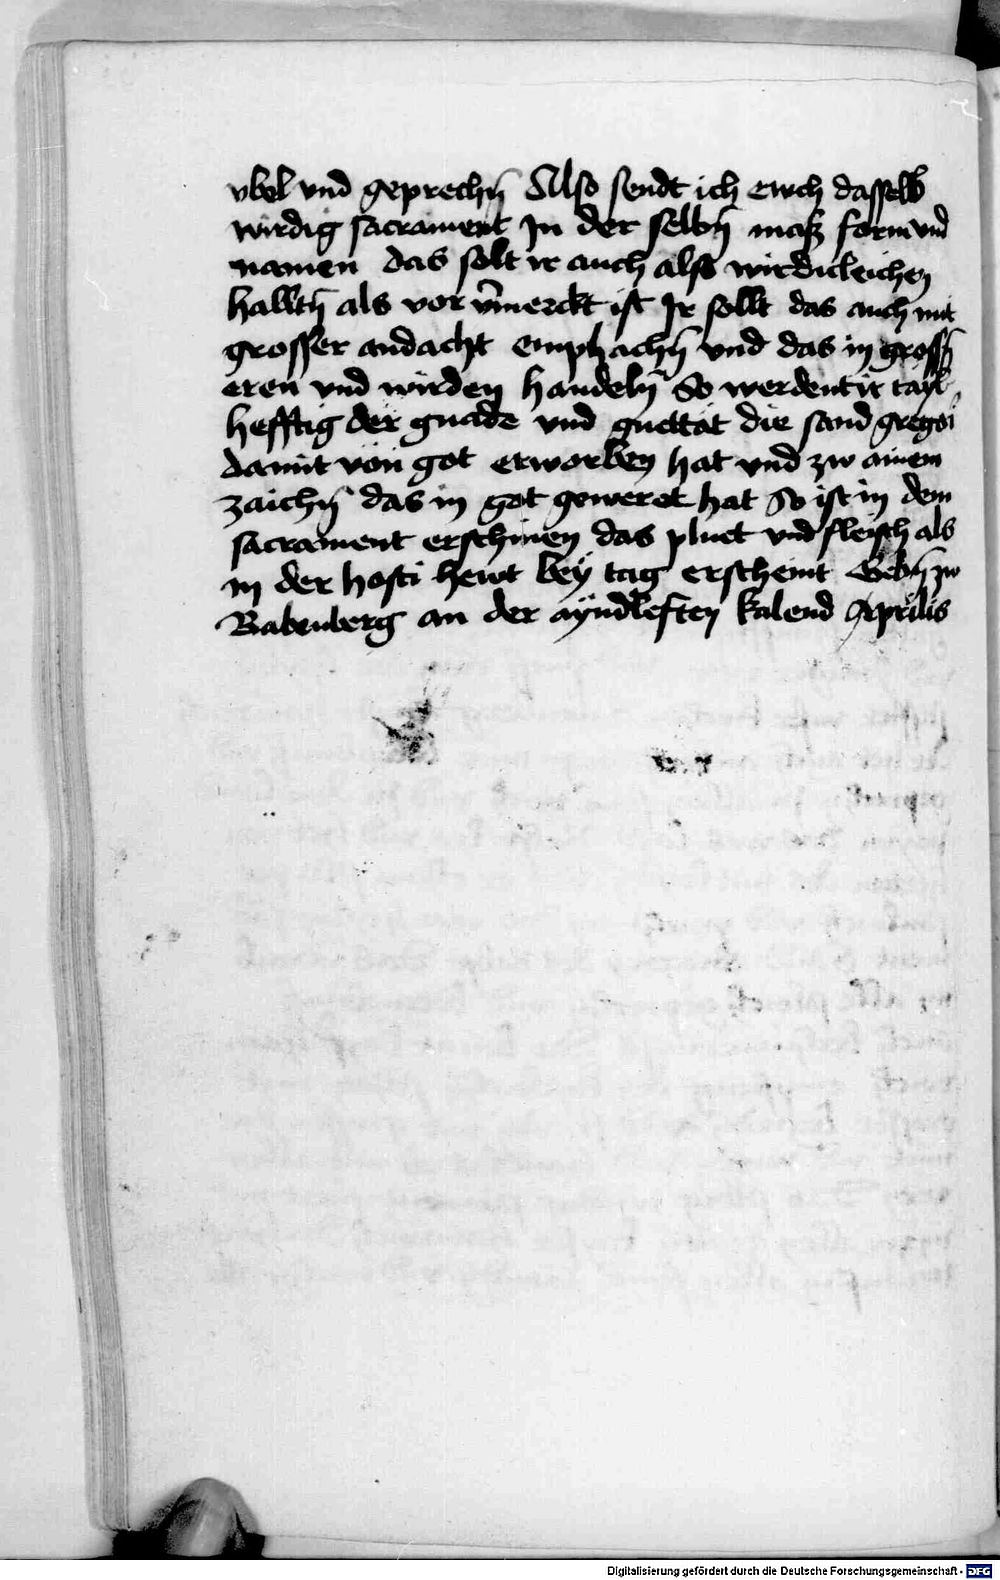 vbel vnd geprechn̄ Also sendt ich ewch dasselb
wirdig sacrament In der selbn̄ masz form vnd
namen das solt ir auch alss wirdicleichen
halltn̄ als vor v̄merckt ist Ir sollt das auch mit
grosser andacht emphachn̄ vnd das in grossn̄
eren vnd wirden handeln̄ So werdent ir tayl
hefftig der gnade vnd guettät die sand gregori
damit von got erworben hat vnd zw ainem
zaichn̄ das in got geweret hat So ist in dem
sacrament erschinen das pluet vnd fleisch als
in der hosti hewt bey tag erscheint Gebn̄ zw
Babenberg an der ayndleften kalend Aprilis
Digitalisierung gefördert durch die Deutsche Forschungsgemeinschaft - DFG